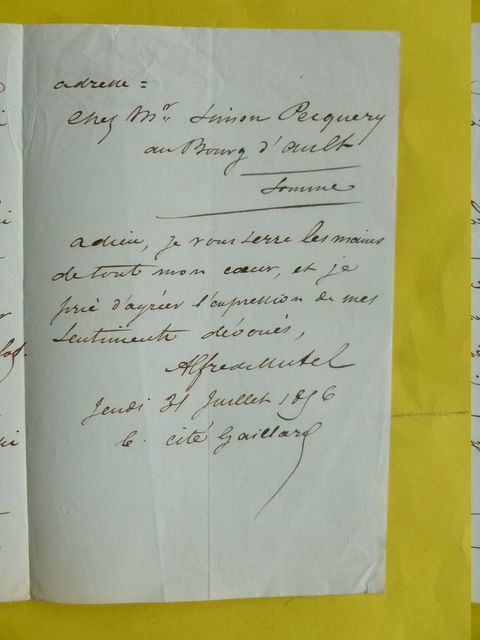 adresse =
Chez Mr. Simon Pecquery
au Bourg d'ault
Somme
adieu, je vous serre les mains
de tout mon cœur, et je
prie d'agréer l'expression de mes
Sentiments dévoués,
Alfred Mutel
Jeudi 31 Juillet 1856
6. cité Gaillard